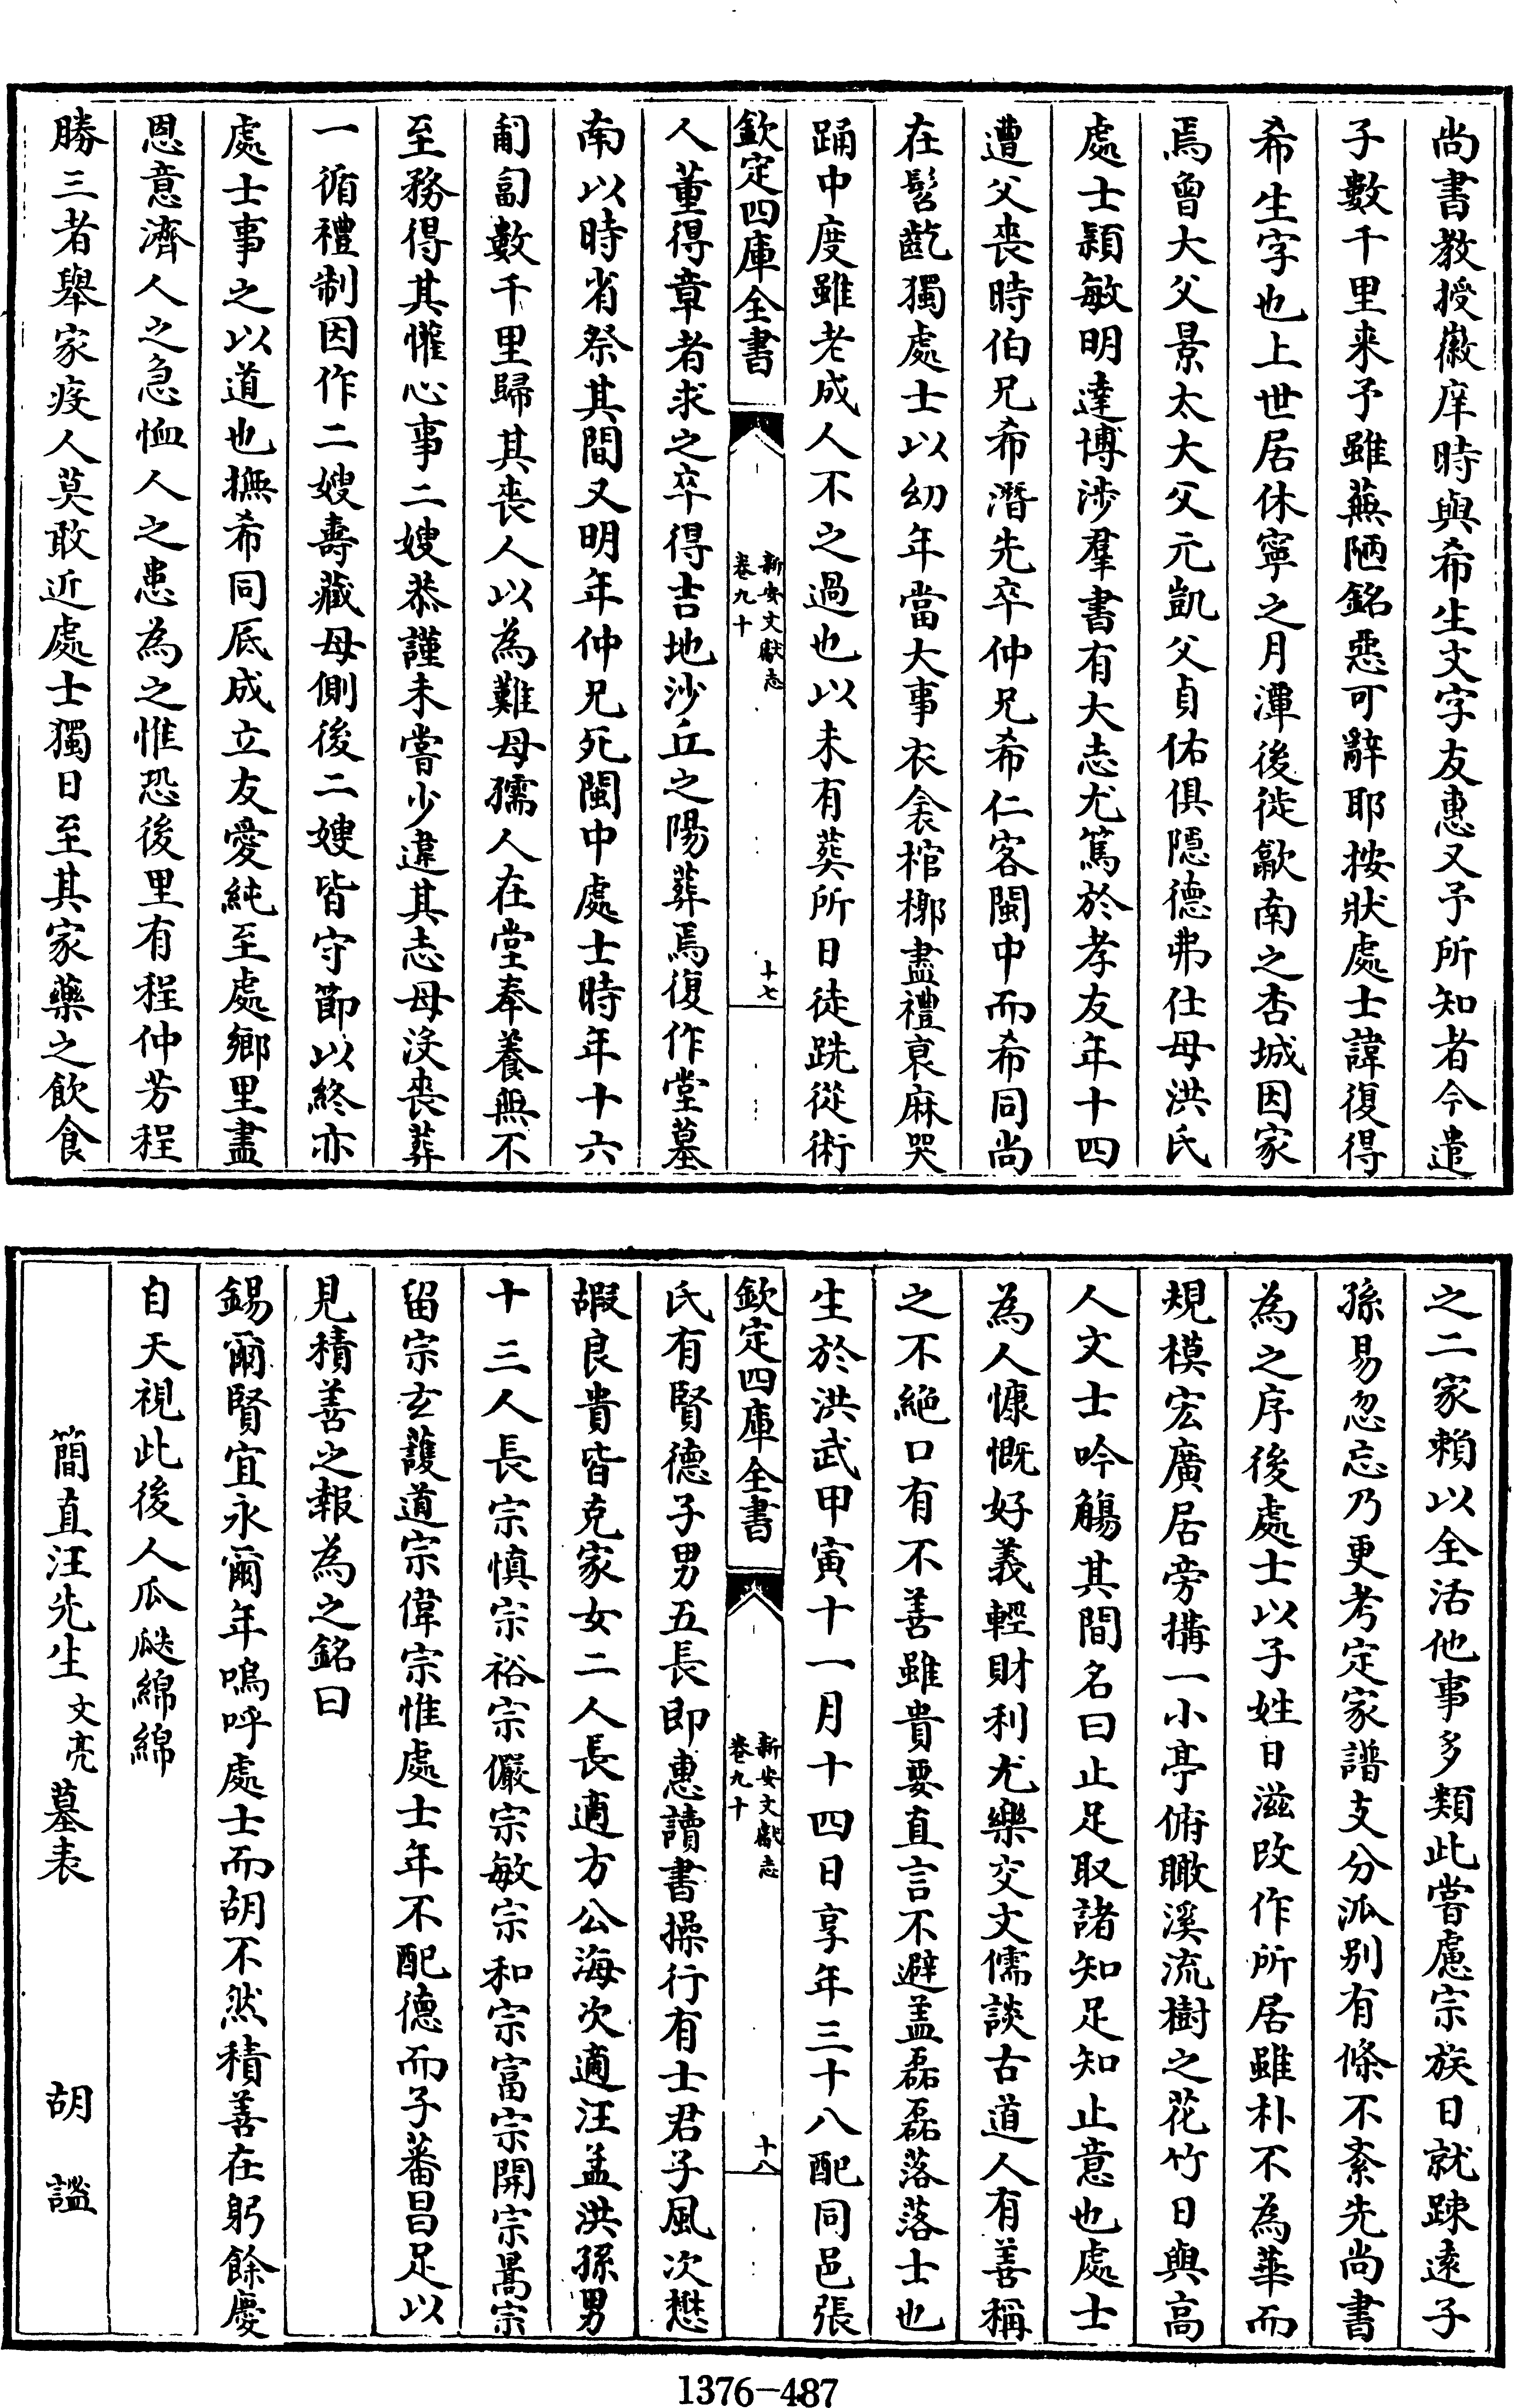 尚書教授徽庠時與希生文字友惠又予所知者今遣
子數千里来予雖蕪陋銘惡可辭耶按狀處士諱復得
希生字也上世居休寧之月潭後徙歙南之杏城因家
焉曾大父景太大父元凱父貞佑俱隱德弗仕母洪氏
處士穎敏明達博涉羣書有大志尤篤於孝友年十四
遭父喪時伯兄希潛先卒仲兄希仁客閩中而希同尚
在髫齔獨處士以幼年當大事衣衾棺槨盡禮衰麻哭
踊中度雖老成人不之過也以未有葬所日徒跣從術
欽定四庫全書
新安文獻志
卷九十
十七
人董得章者求之卒得吉地沙丘之陽葬焉復作堂墓
南以時省祭其間又明年仲兄死閩中處士時年十六
匍匐數千里歸其喪人以為難母孺人在堂奉養無不
至務得其懽心事二嫂恭謹未嘗少違其志母沒喪葬
一循禮制因作二嫂壽藏母側後二嫂皆守節以終亦
處士事之以道也撫希同底成立友愛純至處鄉里盡
恩意濟人之急恤人之患為之惟恐後里有程仲芳程
勝三者舉家疫人莫敢近處士獨日至其家藥之飲食
之二家賴以全活他事多類此嘗慮宗族日就踈遠子
孫易忽忘乃更考定家譜支分派别有條不紊先尚書
為之序後處士以子姓日滋改作所居雖朴不為華而
規模宏廣居旁搆一小亭俯瞰溪流樹之花竹日與高
人文士吟觴其間名曰止足取諸知足知止意也處士
為人慷慨好義輕財利尤樂交文儒談古道人有善稱
之不絶口有不善雖貴要直言不避盖磊磊落落士也
生於洪武甲寅十一月十四日享年三十八配同邑張
欽定四庫全書
新安文獻志
卷九十
十八
氏有賢德子男五長即惠讀書操行有士君子風次懋
嘏良貴皆克家女二人長適方公海次適汪孟洪孫男
十三人長宗慎宗裕宗儼宗敏宗和宗富宗開宗暠宗
留宗玄護道宗偉宗惟處士年不配德而子蕃昌足以
見積善之報為之銘曰
錫爾賢宜永爾年嗚呼處士而胡不然積善在躬餘慶
自天視此後人瓜瓞綿綿
簡直汪先生文亮墓表　胡謐
1376-487